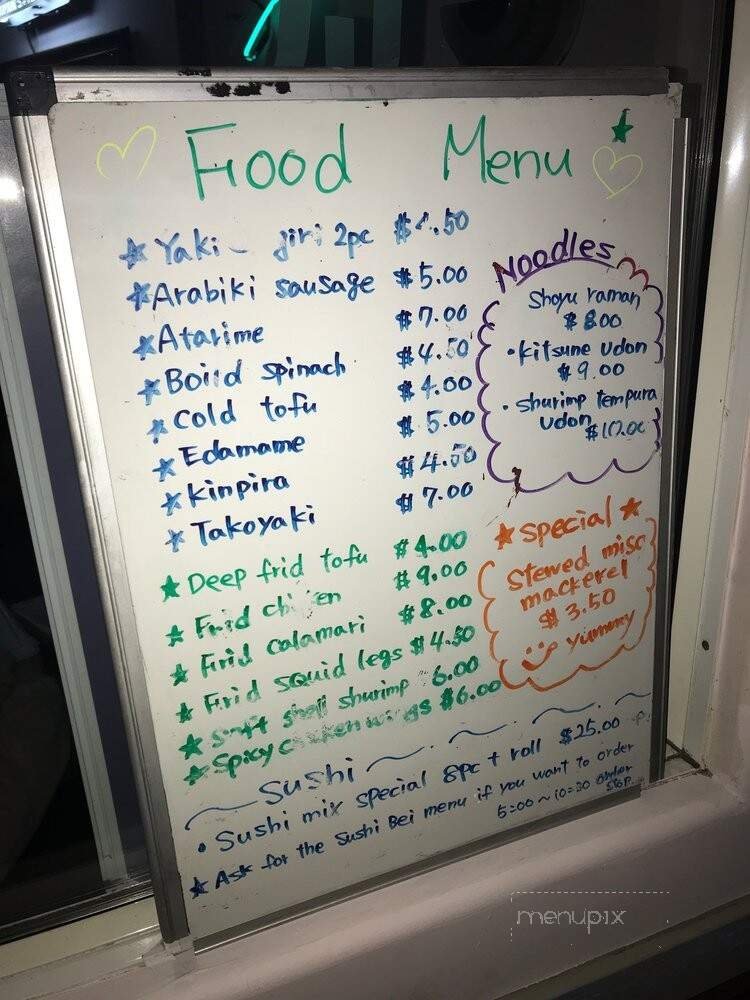 Food Menu
Yaki giri 2pc
Arabiki sausage $5.00
Atarime $7.00
Boild spinach $4.50
Cold tofu $4.00
Edamame $5.00
Kinpira $4.50
Takoyaki $7.00
Deep frid tofu $4.00
Frid chi en $9.00
Firid calamari $8.00
Firid squid legs $4.50
Soft shell shurimp 6.00
Spicy chicken wings $6.00
Noodles
Shoyu raman
$8.00
• kitsune udon
$9.00
• shurimp tempura
udon $10.00
special
Stewed miso
mackerel
$3.50
yummy
Sushi
• Sushi mix special 8pc + roll $25.00
Ask for the Sushi Bei menu if you want to order
5:00 ~ 10:30 order
stop.
menupix